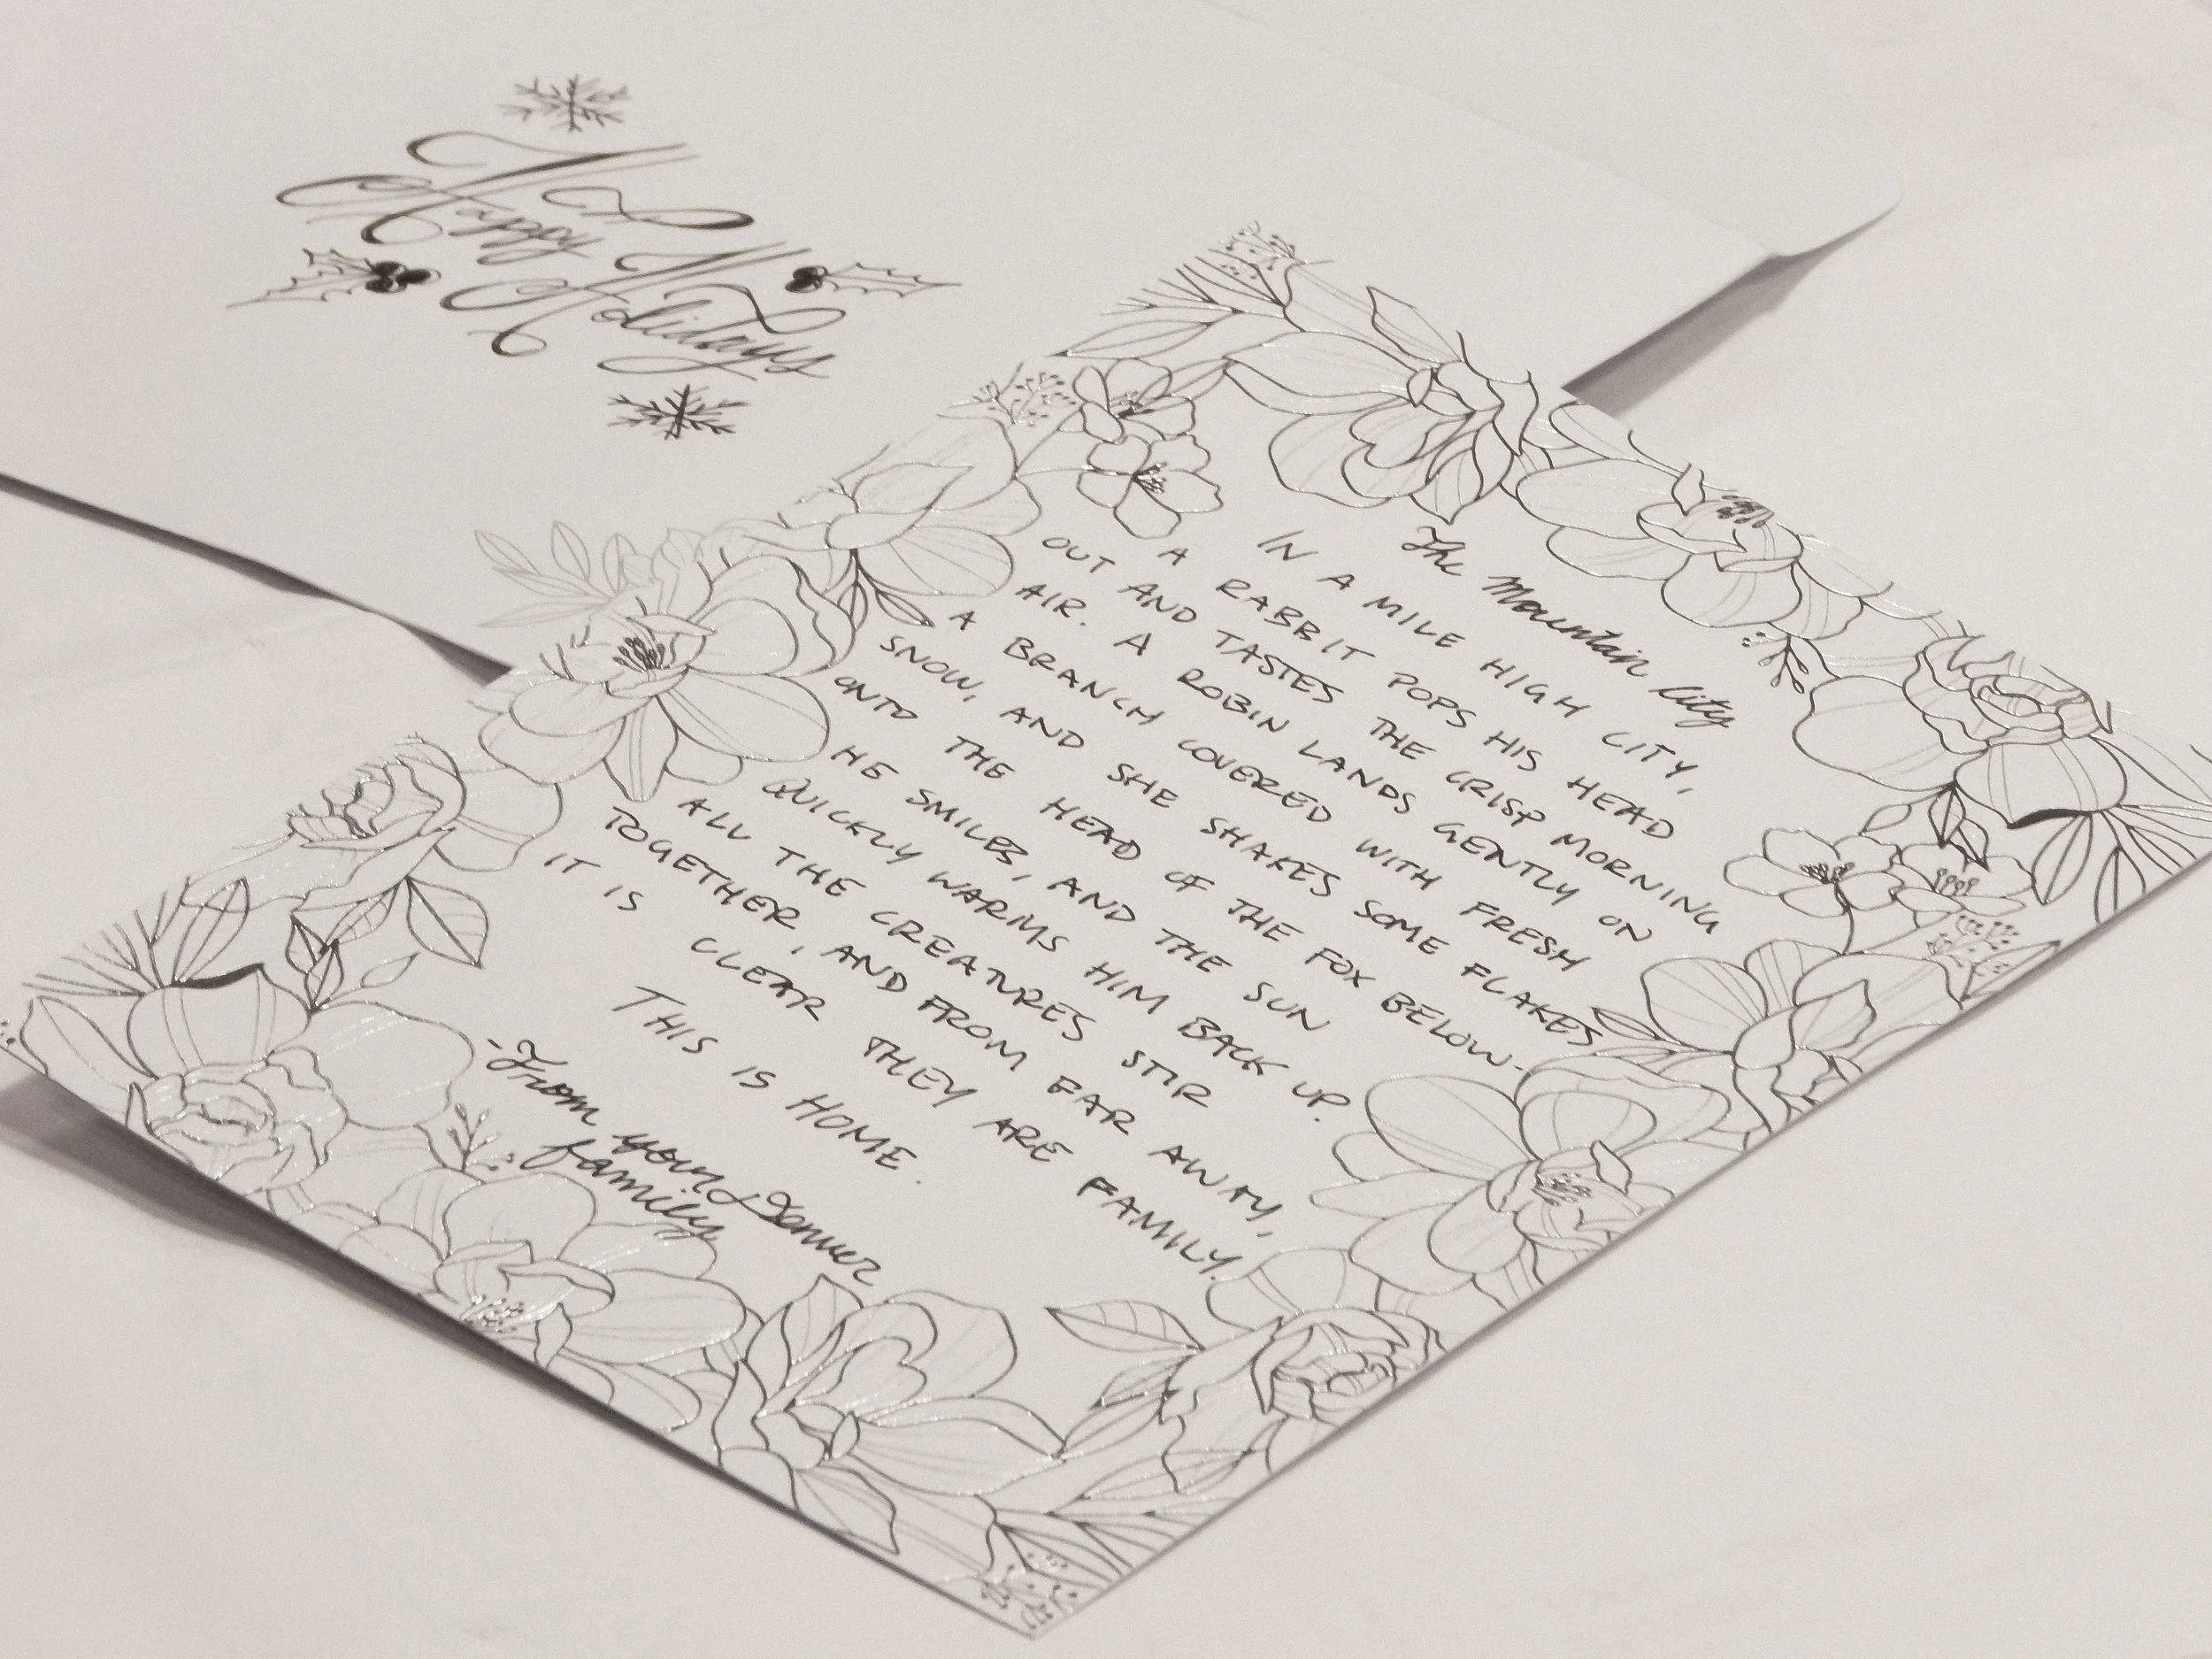 Happy
Holidays
The Mountain City
IN A MILE HIGH CITY,
A RABBIT POPS HIS HEAD
OUT AND TASTES THE CRISP MORNING
AIR. A ROBIN LANDS GENTLY ON
A BRANCH COVERED WITH FRESH
SNOW, AND SHE SHAKES SOME FLAKES
ONTO THE HEAD OF THE FOX BELOW-
HE SMILES, AND THE SUN
QUICKLY WARMS HIM BACK UP.
ALL THE CREATURES STIR
TOGETHER, AND FROM FAR AWAY,
IT IS CLEAR THEY ARE FAMILY.
THIS IS HOME.
-From your Denver
family